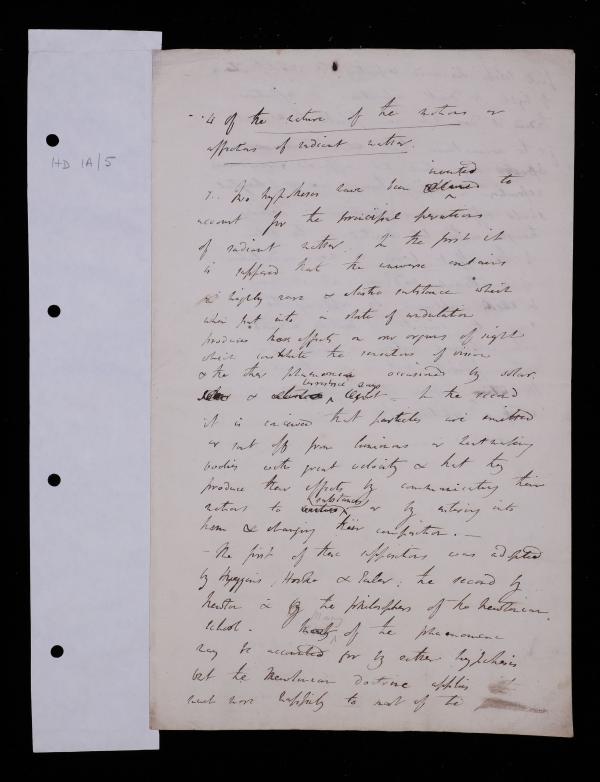 HD 1A/5
4 of the nature of the motions or
affections of radiant matter.
1. Two hypotheses have been invented to
account for the principal operations
of radiant matter. In the first it
is supposed that the universe contains
a highly rare & elastic substance which
when put into a state of undulation
produces those effects on our organs of sight
which constitute the sensations of vision
& the other phaenomena occasioned by solar
& terrestrial rays – In the second
it is conceived that particles are emitted
or sent off from luminous or heat making
bodies with great velocity & that they
produce their effects by communicating their
motions to substances or by entering into
them & changing their composition. –
– The first of these suppositions was adopted
by Huygens, Hooke & Euler; the second by
Newton & by the philosophers of the Newtonian
school. – Many of the phaenomena
may be accounted for by either hypothesis
but the Newtonian doctrine applies
much more happily to most of the